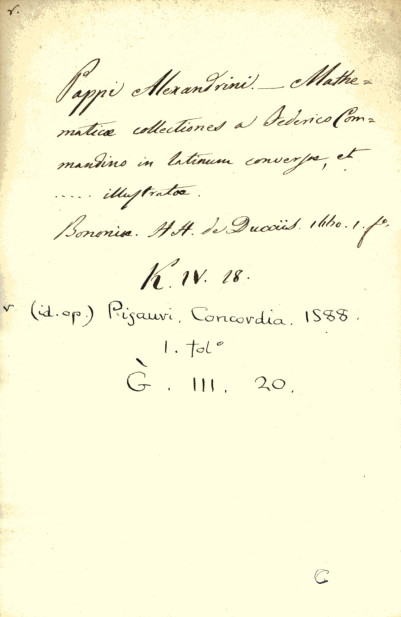 v.
Pappi Alexandrini. — Mathe=
maticæ collectiones a Federico Com=
mandino in latinum conversæ, et
..... illustratæ.
Bononiæ. HH. de Ducciis. 1660. 1. fo.
K. IV. 18.
v (id. op.) Pisauri. Concordia. 1588.
1. folº
G. III. 20.
C